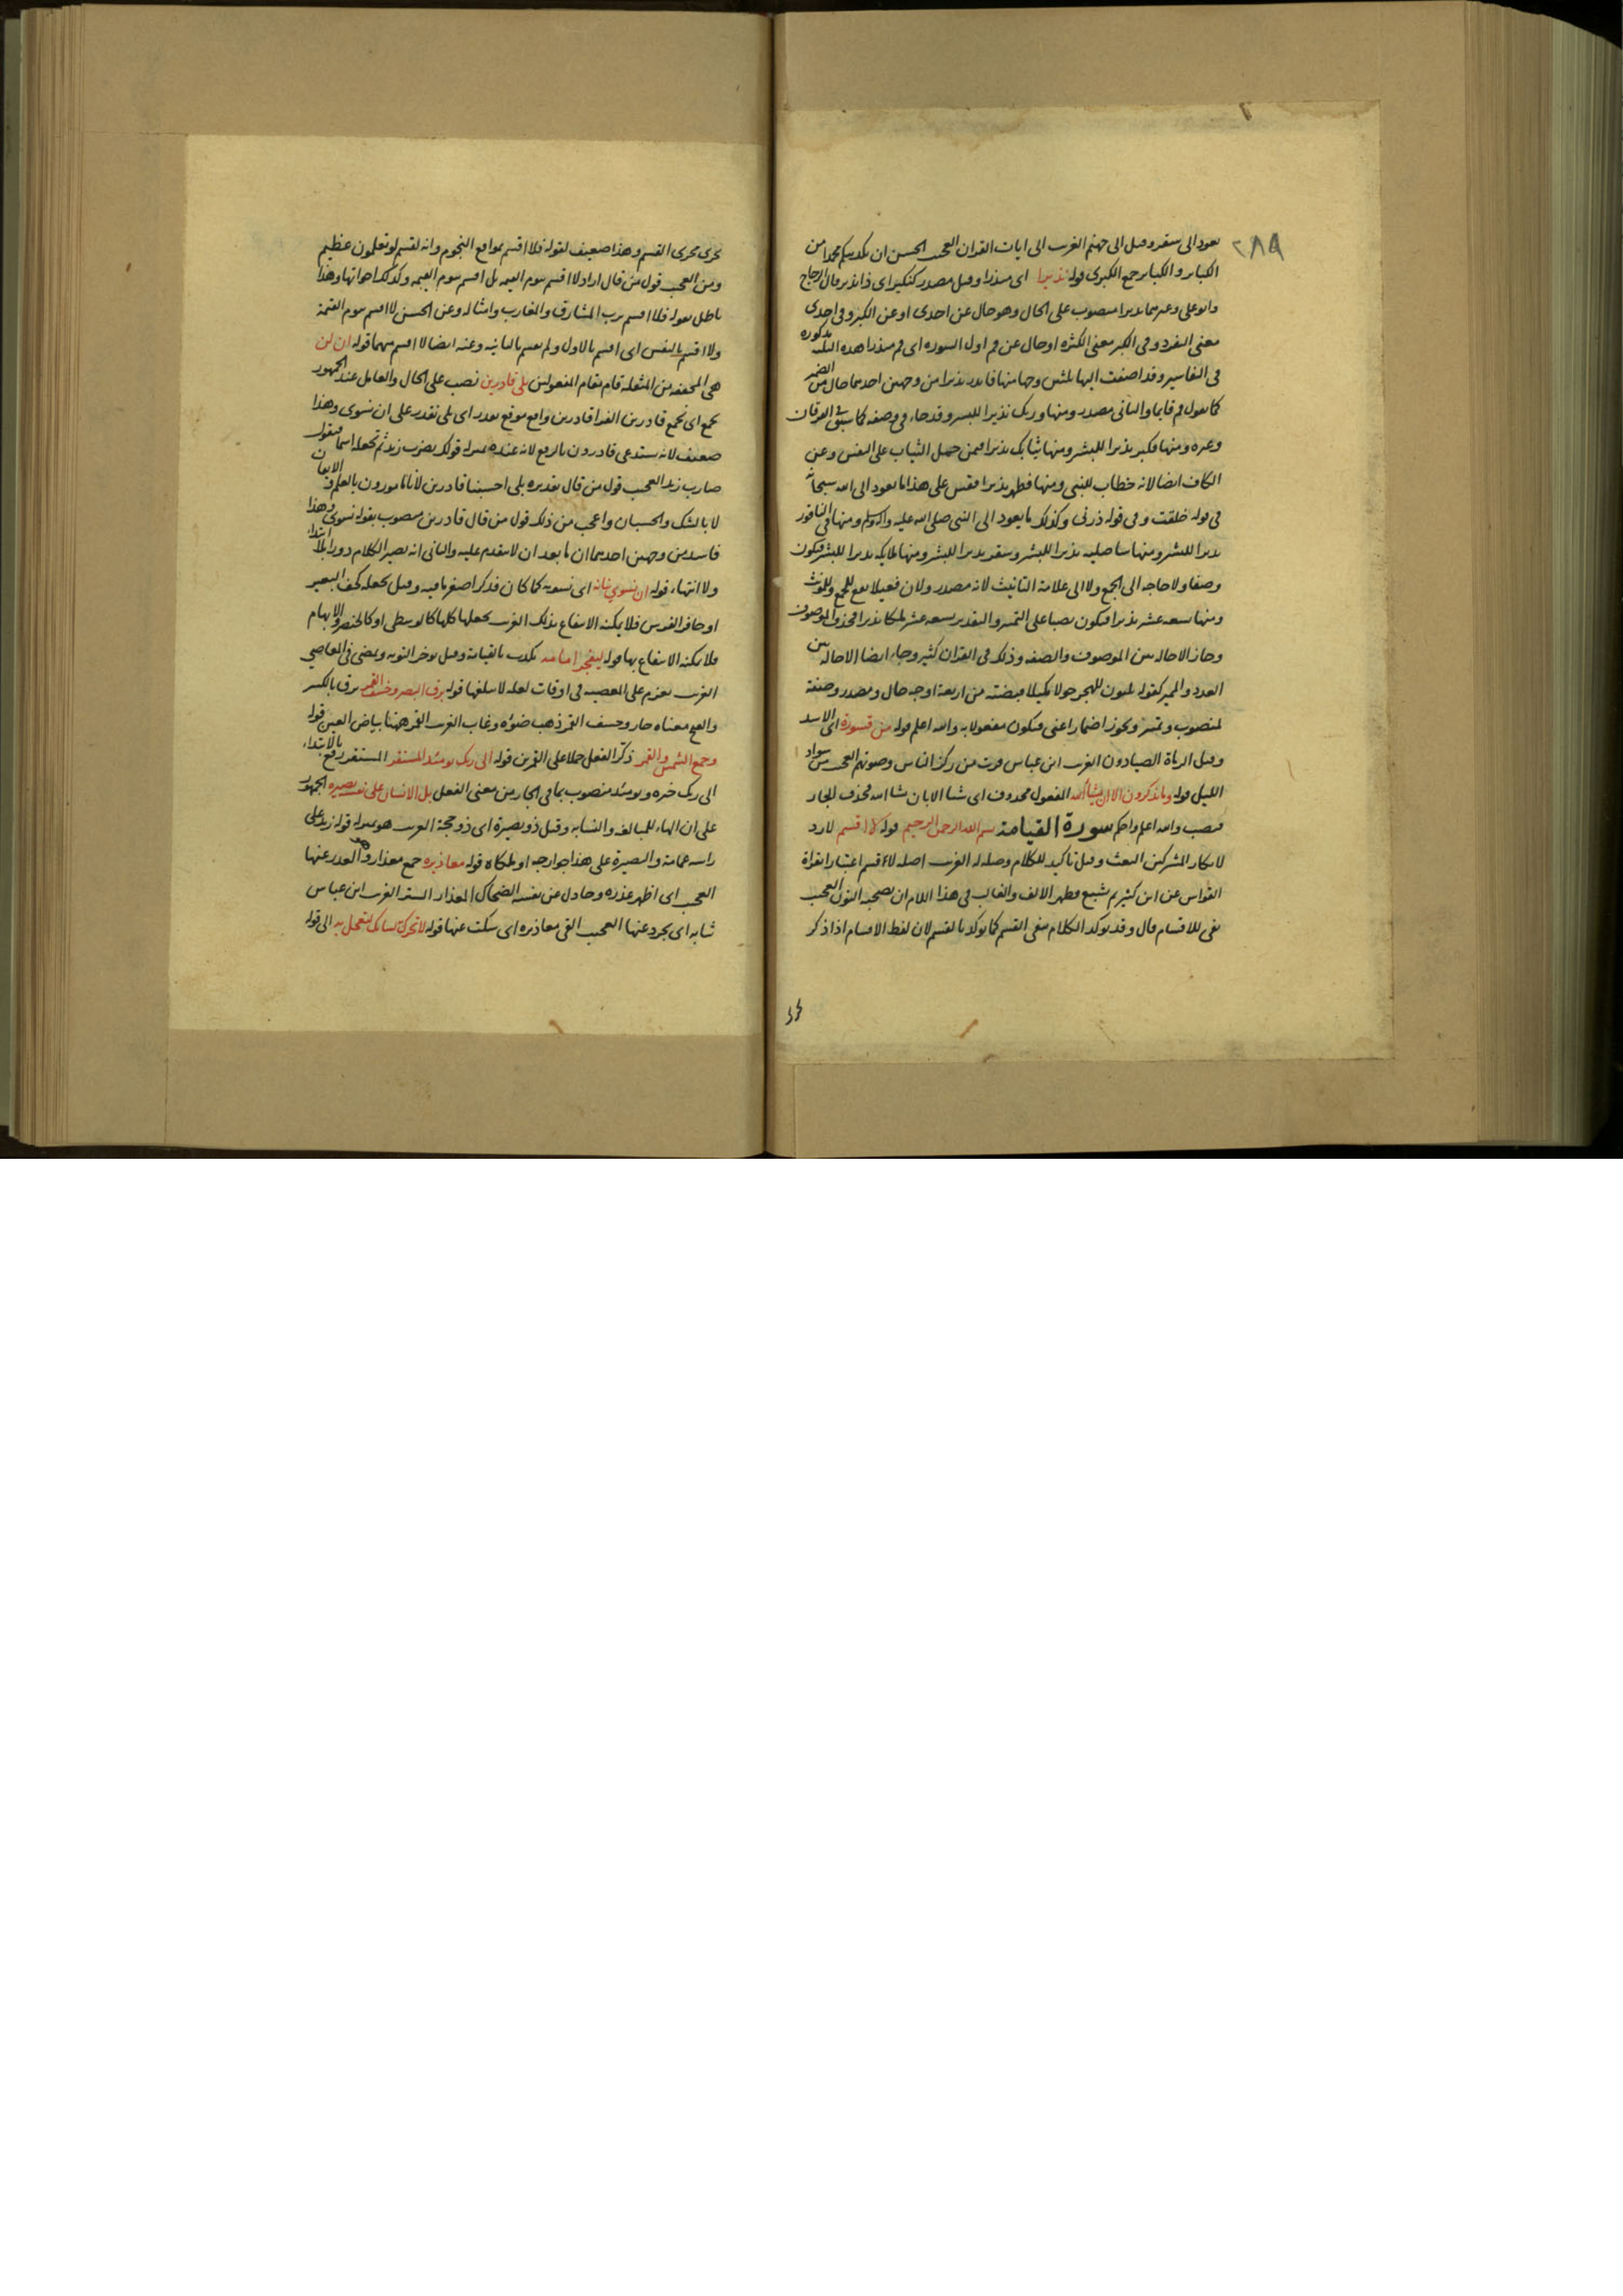 ٢٨٩
يعود الى سقر وقيل الى جهنم الغريب الى ايات القران العجيب الحسن ان تكذيبكم محمدا من
الكباير والكباير جمع الكبرى قوله نذيرا اى منذرا وقيل مصدر كنكير اى ذا انذار قال الزجاج
وابو على وغيرهما نذيرا منصوب على الحال وهو حال عن احدى او عن الكبر وفى احدى
معنى التفرد وفى الكبر معنى الكثره او حال عن قم اول السوره اى قم منذرا هذه الثلثه مذكوره
فى التفاسير وقد اضفت اليها ثلثين وجها منها فانذر نذيرا من وجهين احدهما حال من الضمير
كما تقول قم قايما والثانى مصدر ومنها وربك نذيرا للبشر وقد جاء فى وصفه كما سبق فى الفرقان
وغيره ومنها فكبر نذيرا للبشر ومنها ثيابك نذيرا فيمن حمل الثياب على النفس وعن
الكاف ايضا لانه خطاب للنبى ومنها فطهر نذيرا فقس على هذا ما يعود الى الله سبحانه
فى قوله خلقت وفى قوله ذرنى وكذلك ما يعود الى النبى صلى الله عليه واله وسلم ومنها فى الناقور
نذيرا للبشر ومنها ساصليه نذيرا للبشر وسقر نذيرا للبشر ومنها ملايكه نذيرا للبشر فيكون
وصفا ولا حاجه الى الجمع ولا الى علامة التانيث لانه مصدر ولان فعيلا يقع للجمع وللمونث
ومنها تسعه عشر نذيرا فيكون نصبا على التمييز والتقدير تسعه عشر ملكا نذيرا فحذف الموصوف
وجاز الاحاله بين الموصوف والصفه وذلك فى القران كثير وجاء ايضا الاحاله بين
العدد والمميز كقوله ثلثون للهجر حولا كميلا فبضته من اربعة اوجه حال ومصدر وصفة
لمنصوب وتمييز ويجوز اضمار اعنى فيكون مفعولا به والله اعلم قوله من قسورة اى الاسد
وقيل الرماة الصيادون الغريب ابن عباس فرت من ركز الناس وصوتهم العجيب من سواد
الليل قوله وما يذكرون الا ان يشاء الله المفعول محذوف اى شيا الا بان يشا الله فحذف الجار
فنصب والله اعلم واحكم سورة القيامة بسم الله الرحمن الرحيم قوله لا اقسم لا رد
لانكار المشركين البعث وقيل تاكيد للكلام وصله له الغريب اصله لاقسم اعتبارا بقراة
القواس عن ابن كثير ثم اشبع فظهر الالف والغالب فى هذا اللام ان يصحبه النون العجيب
نفى للاقسام قال وقد يوكد الكلام بنفى القسم كما يوكد بالقسم لان لفظ الاقسام اذا ذكر
يجرى مجرى القسم وهذا ضعيف لقوله فلا اقسم بمواقع النجوم وانه لقسم لو تعلمون عظيم
ومن العجيب قول من قال اراد لا اقسم بيوم القيمه بل اقسم بيوم القيمه وكذلك اخواتها وهذا
باطل بقوله فلا اقسم برب المشارق والمغارب وامثاله وعن الحسن لا اقسم بيوم القيمة
ولا اقسم بالنفس اى اقسم بالاول ولم يقسم بالثانيه وعنه ايضا لا اقسم بهما قوله ان لن
هى المخففه من المثقله قام مقام المفعولين بلى قادرين نصب على الحال والعامل عند الجمهور
نجمع اى نجمع قادرين الفرا قادرين واقع موقع نقدر اى بلى نقدر على ان نسوى وهذا
ضعيف لانه يستدعى قادرون بالرفع لانه عنده بمنزله قولك يضرب زيد ثم تجعله اسما فيقول
ضارب زيد العجيب قول من قال تقديره بلى احسبنا قادرين لانا مامورون بالعلم والايقان
لا بالشك والحسبان واعجب من ذلك قول من قال قادرين منصوب بقوله نسوى وهذا
فاسد من وجهين احدهما ان ما بعد ان لا يتقدم عليه والثانى انه يصير الكلام دورا بلا ابتداء
ولا انتهاء قوله ان نسوي بنانه اى نسويه كما كان فذكر اصغر ما فيه وقيل نجعله كخف البعير
او حافر الفرس فلا يمكنه الانتفاع بذلك الغريب نجعلها كلها كالوسطى او كالخنصر والابهام
فلا يمكنه الانتفاع بها قوله ليفجر امامه يكذب بالقيامة وقيل يوخر التوبه ويمضى فى المعاصي
الغريب يعزم على المعصيه فى اوقات لعله لا يبلغها قوله برق البصر وخسف القمر برق بالكسر
والفتح معناه حار وخسف القمر ذهب ضوءه وغاب الغريب القمر ههنا بياض العين قوله
وجمع الشمس والقمر ذكّر الفعل حملا على القمرين قوله الى ربك يومئذ المستقر المستقر رفع بالابتداء
الى ربك خبره ويومئذ منصوب بما فى الجار من معنى الفعل بل الانسان على نفسه بصيره الجمهور
على ان الهاء للمبالغه والنسابه وقيل ذو بصيرة اى ذو حجة الغريب هو بمنزله قوله زيد على
راسه عمامة والبصيرة على هذا جوارحه او ملكاه قوله معاذيره جمع معذار وهو العذر عنها
العجيب اى اظهر عذره وجادل عن نفسه الضحاك المعذار الستر الغريب ابن عباس
ثيابه اى تجرد عنها العجيب القى معاذيره اى سكت عنها قوله لا تحرك لسانك لتعجل به الى قوله